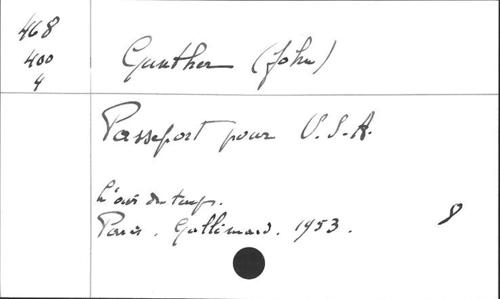 468
400
4
Gunther (John)
Passeport pour U.S.A.
L'air du temps.
Paris. Gallimard. 1953.
8